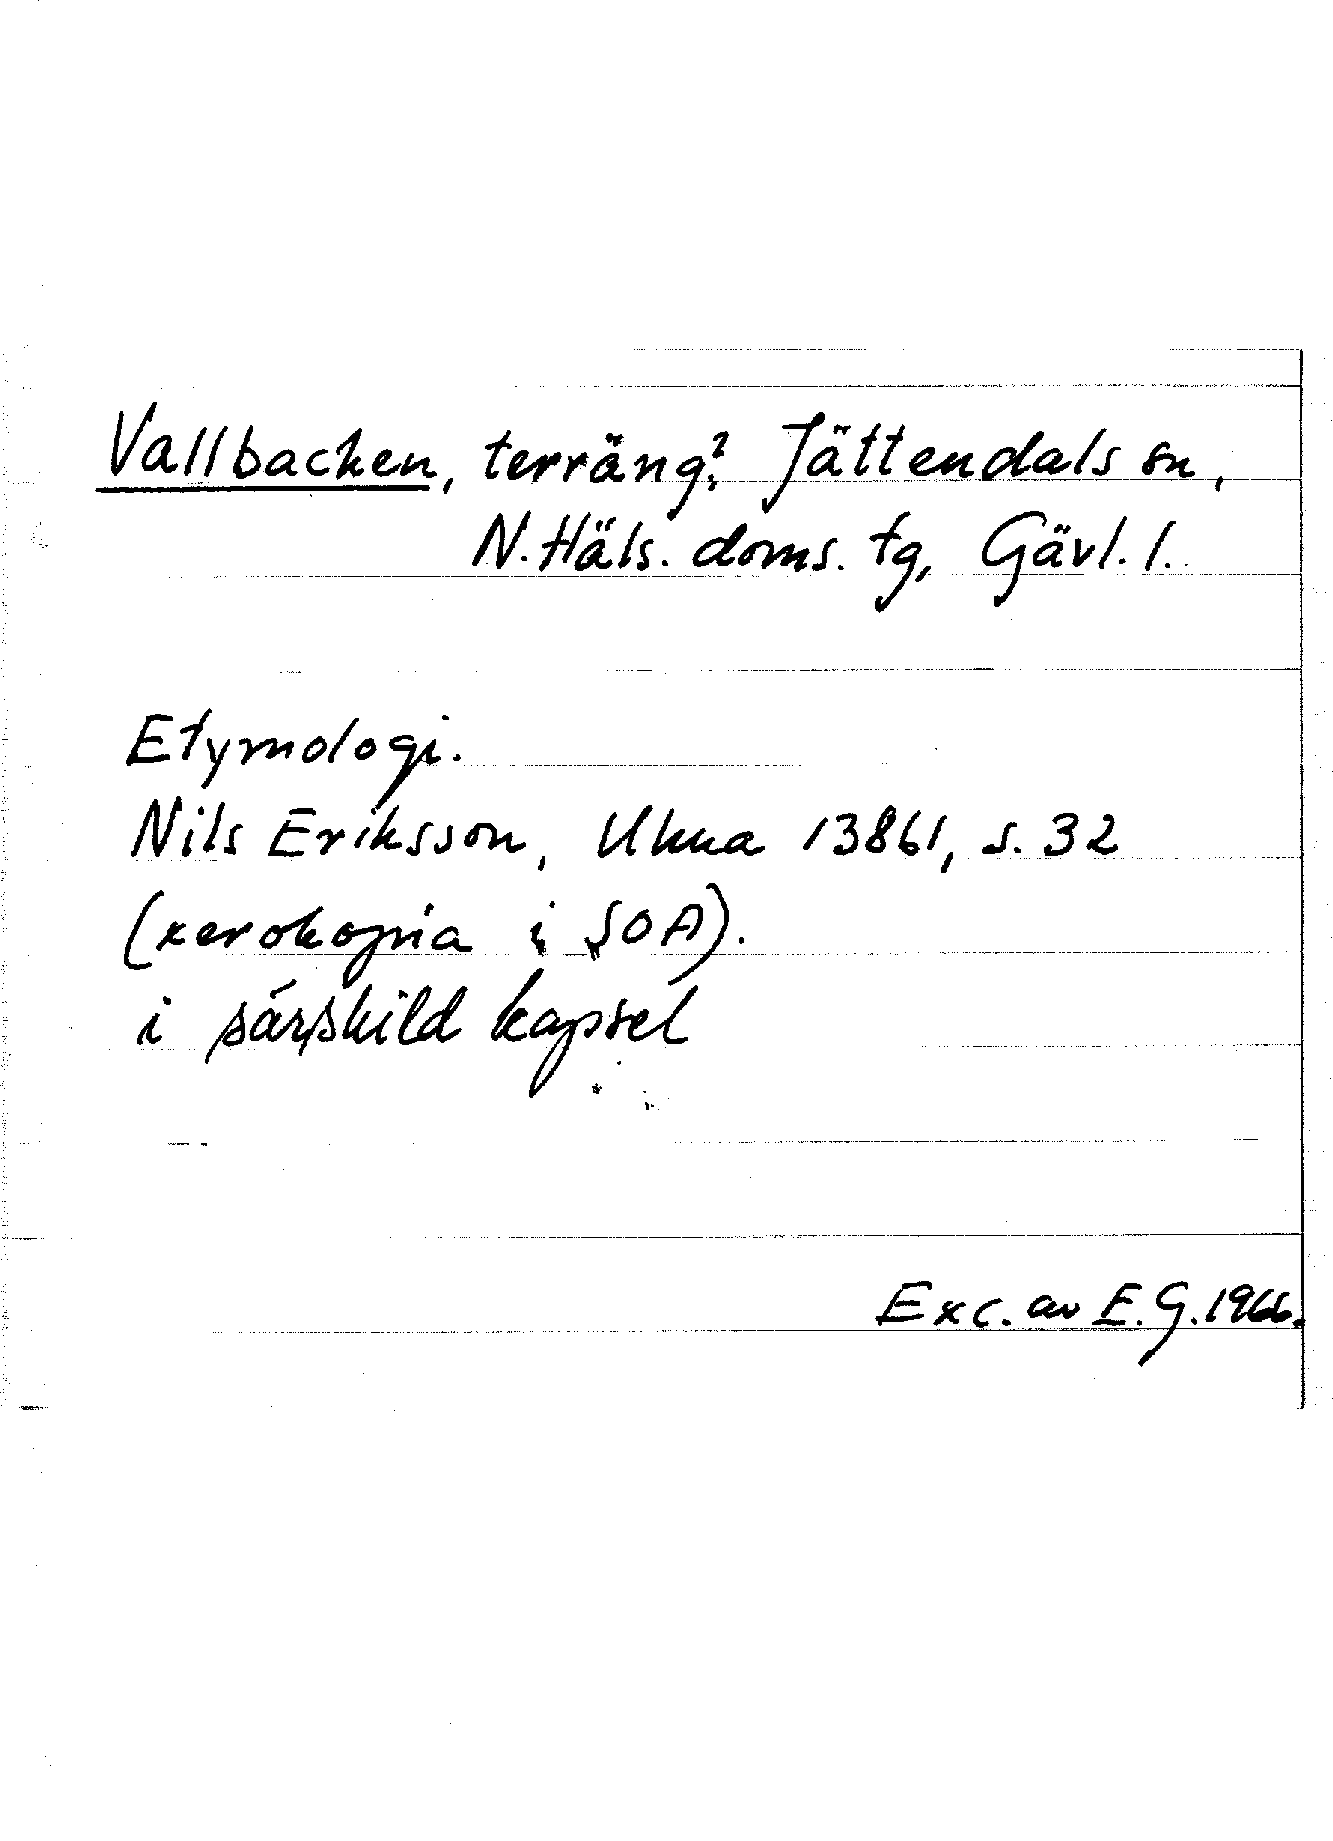 Vallbacken, terräng? Jättendals sn,
N. Häls. doms. tg, Gävl. l.
Etymologi.
Nils Eriksson, Ukna 13861, s. 32
(xerokopia i SOA).
i särskild kapsel
Exc. av E. G. 1966.